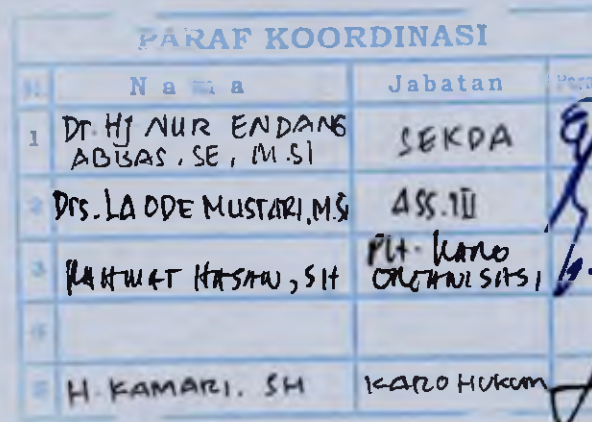 PARAF KOORDINASI
Nama Jabatan
1 Dr. Hj NUR ENDANG ABBAS, SE, M.SI SEKDA
2 Drs. LA ODE MUSTARI, M.Si ASS. III
3 RAHMAT HASAN, SH Plt. KARO ORGANISASI
5 H. KAMARI. SH KARO HUKUM